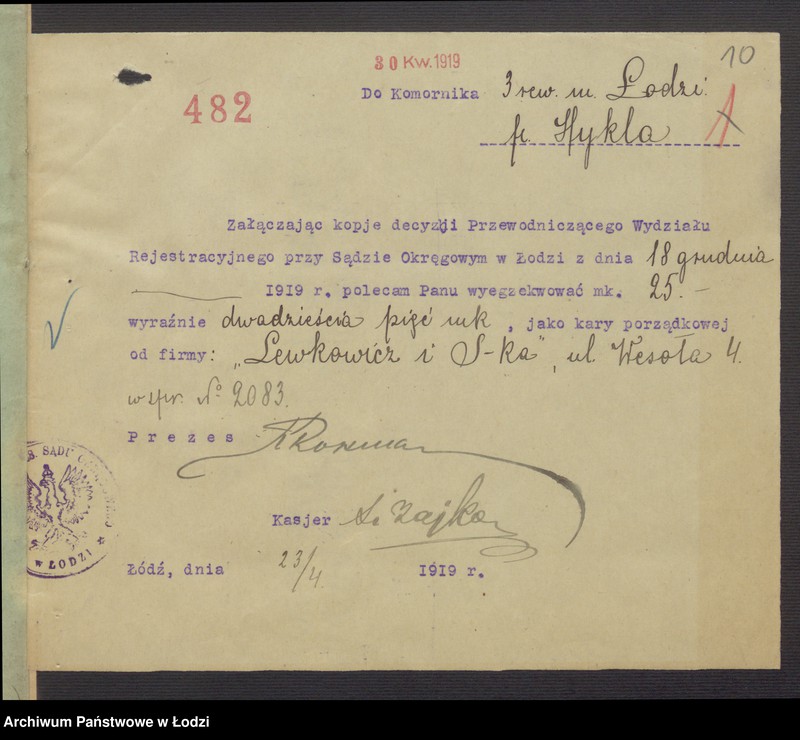 10
30 Kw. 1919
482
Do Komornika 3 rew. m. Łodzi
p. Hykla
1
Załączając kopje decyzji Przewodniczącego Wydziału
Rejestracyjnego przy Sądzie Okręgowym w Łodzi z dnia 18 grudnia
1919 r. polecam Panu wyegzekwować mk. 25.–
wyraźnie dwadzieścia pięć mk , jako kary porządkowej
od firmy: „Lewkowicz i S-ka", ul. Wesoła 4.
w spr. № 2083.
Prezes
Kasjer
SĄDU
w ŁODZI
Łódź, dnia 23/4 1919 r.
Archiwum Państwowe w Łodzi